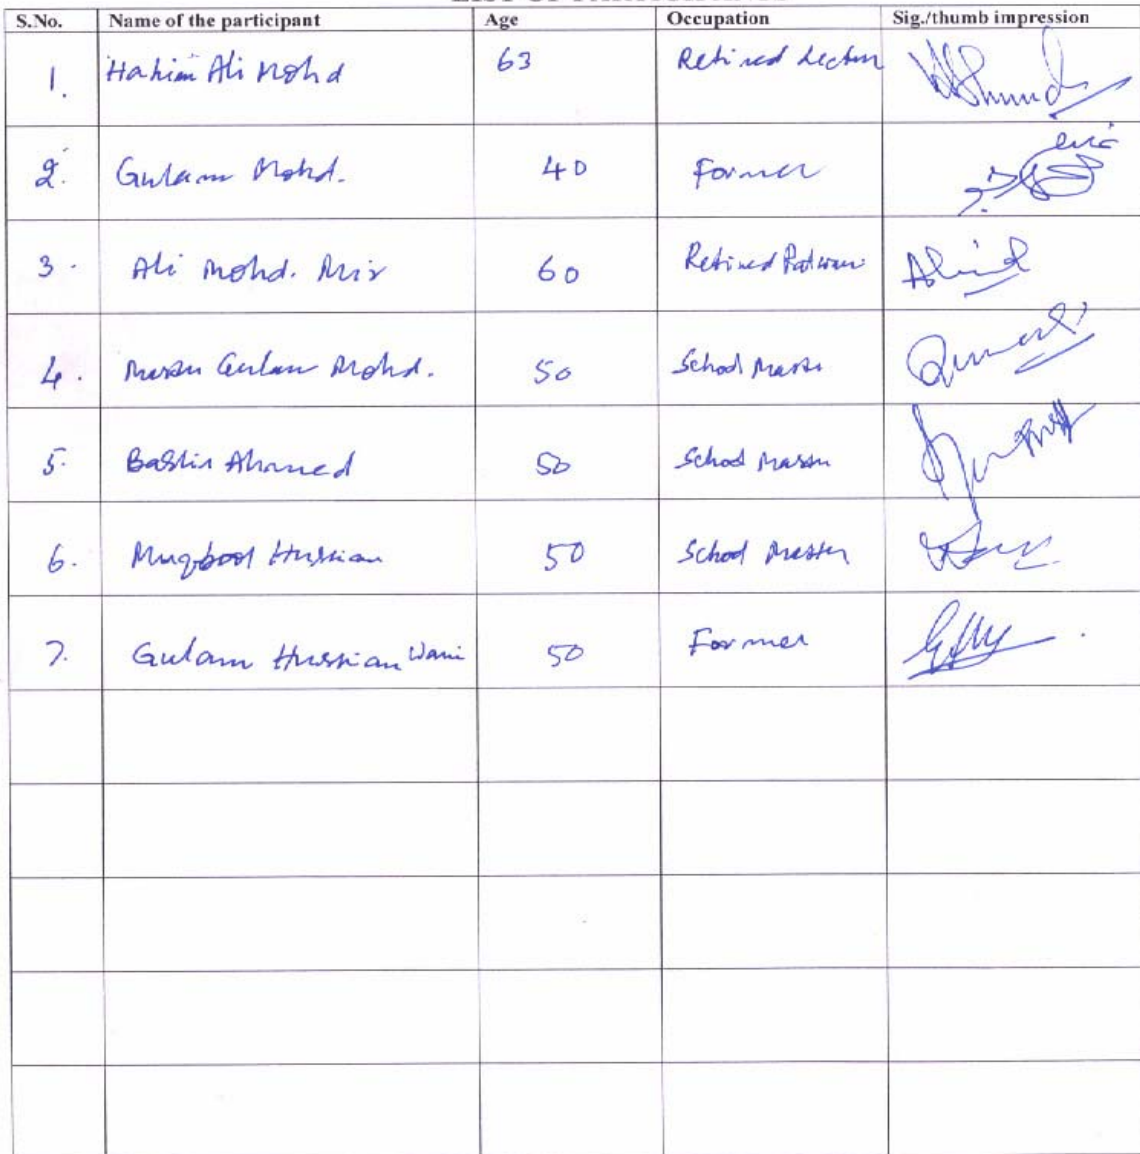 S.No. Name of the participant Age Occupation Sig./thumb impression
1. Hakim Ali Mohd 63 Retired Lectur
2. Gulam Mohd. 40 Former
3. Ali Mohd. Mir 60 Retired Patwari
4. Gulam Mohd. 50 School Master
5. Bashir Ahmed 50 School Master
6. Muqbool Hussian 50 School Master
7. Gulam Hussian Wani 50 Former